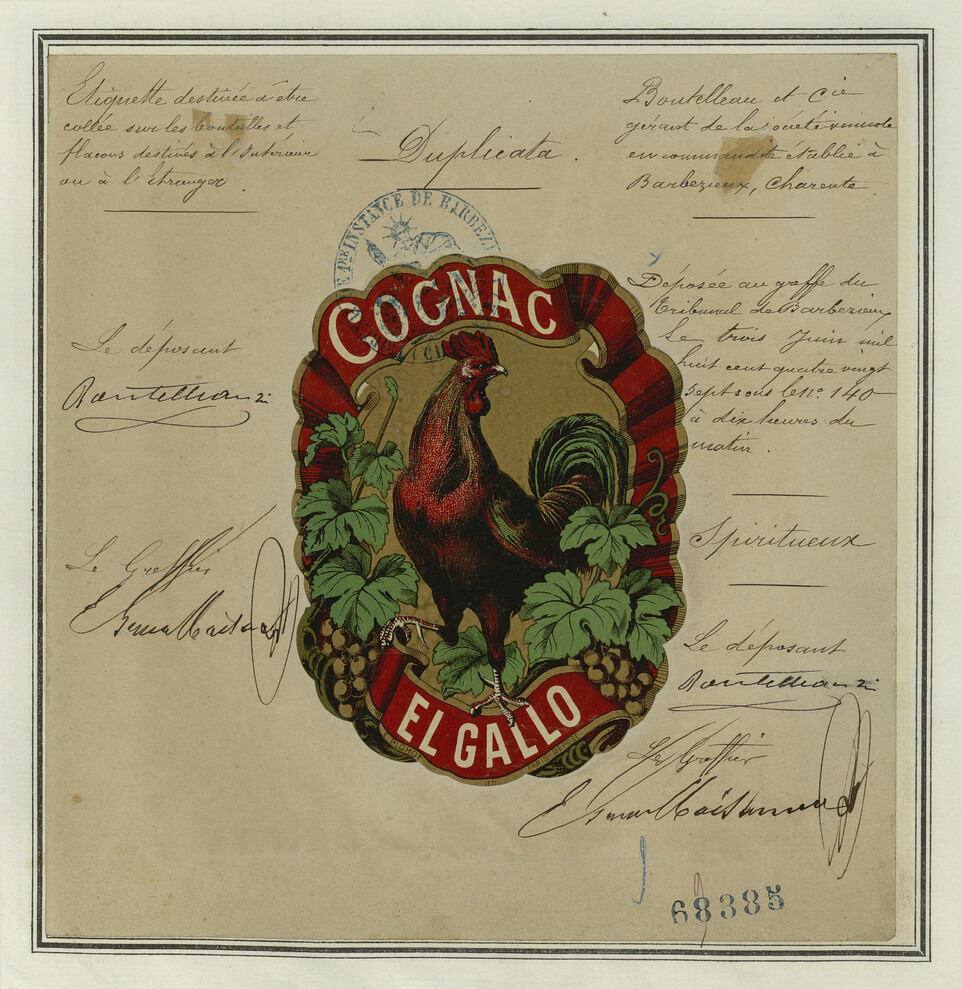 Etiquette destinée à être
collée sur les bouteilles et
flacons destinés à l'Interieur
ou à l'Etranger.
Duplicata.
Boutelleau et Cie
gérant de la Société vinicole
en commandite établie à
Barbezieux, Charente.
1ERE INSTANCE DE BARBEZI
Déposée au greffe du
Tribunal de Barbezieux
Le trois Juin mil
huit cent quatre vingt
sept sous le No. 140
à dix heures du
matin.
COGNAC
Le déposant
Spiritueux
Le Greffier
Le déposant
EL GALLO
PARIS
Le Greffier
68385